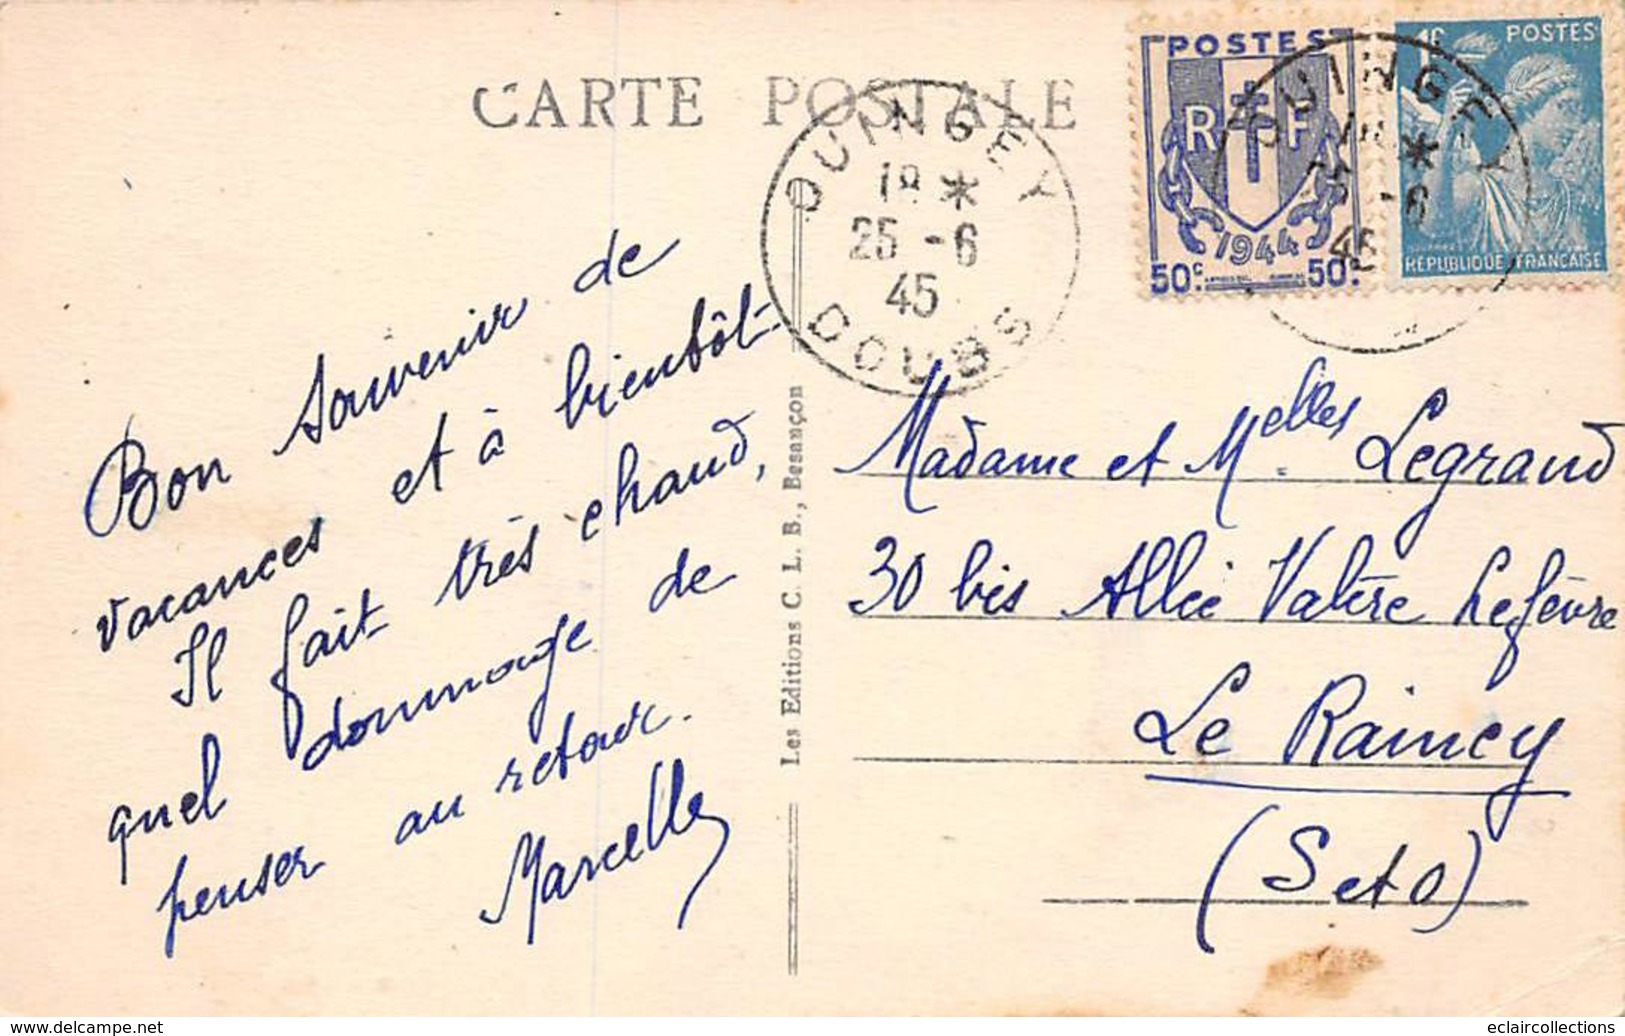 CARTE POSTALE
QUINGEY
18 *
25 - 6
45
DOUBS
POSTES
RF
1944
50c. 50c.
1F POSTES
REPUBLIQUE FRANCAISE
QUINGEY
18 *
25 - 6
45
Bon souvenir de
vacances et à bientôt
Il fait très chaud,
quel dommage de
penser au retour.
Marcelle
Les Editions C. L. B., Besançon
Madame et Melles Legrand
30 bis Allée Valère Lefèvre
Le Raincy
(S et O)
www.delcampe.net
eclaircollections